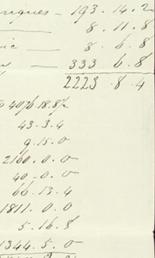 ngues - 193 . 14 . 2
8 . 11 . 8
ic — 8 . 6 . 8
333 6 . 8
2223 . 8 . 4
4076.18.8½
43 . 3 . 4
9 . 15 . 0
2160 . 0 . 0
40 . 0 . 0
66 . 13 . 4
1811 . 0 . 0
5 . 16 . 8
1344 . 5 . 0